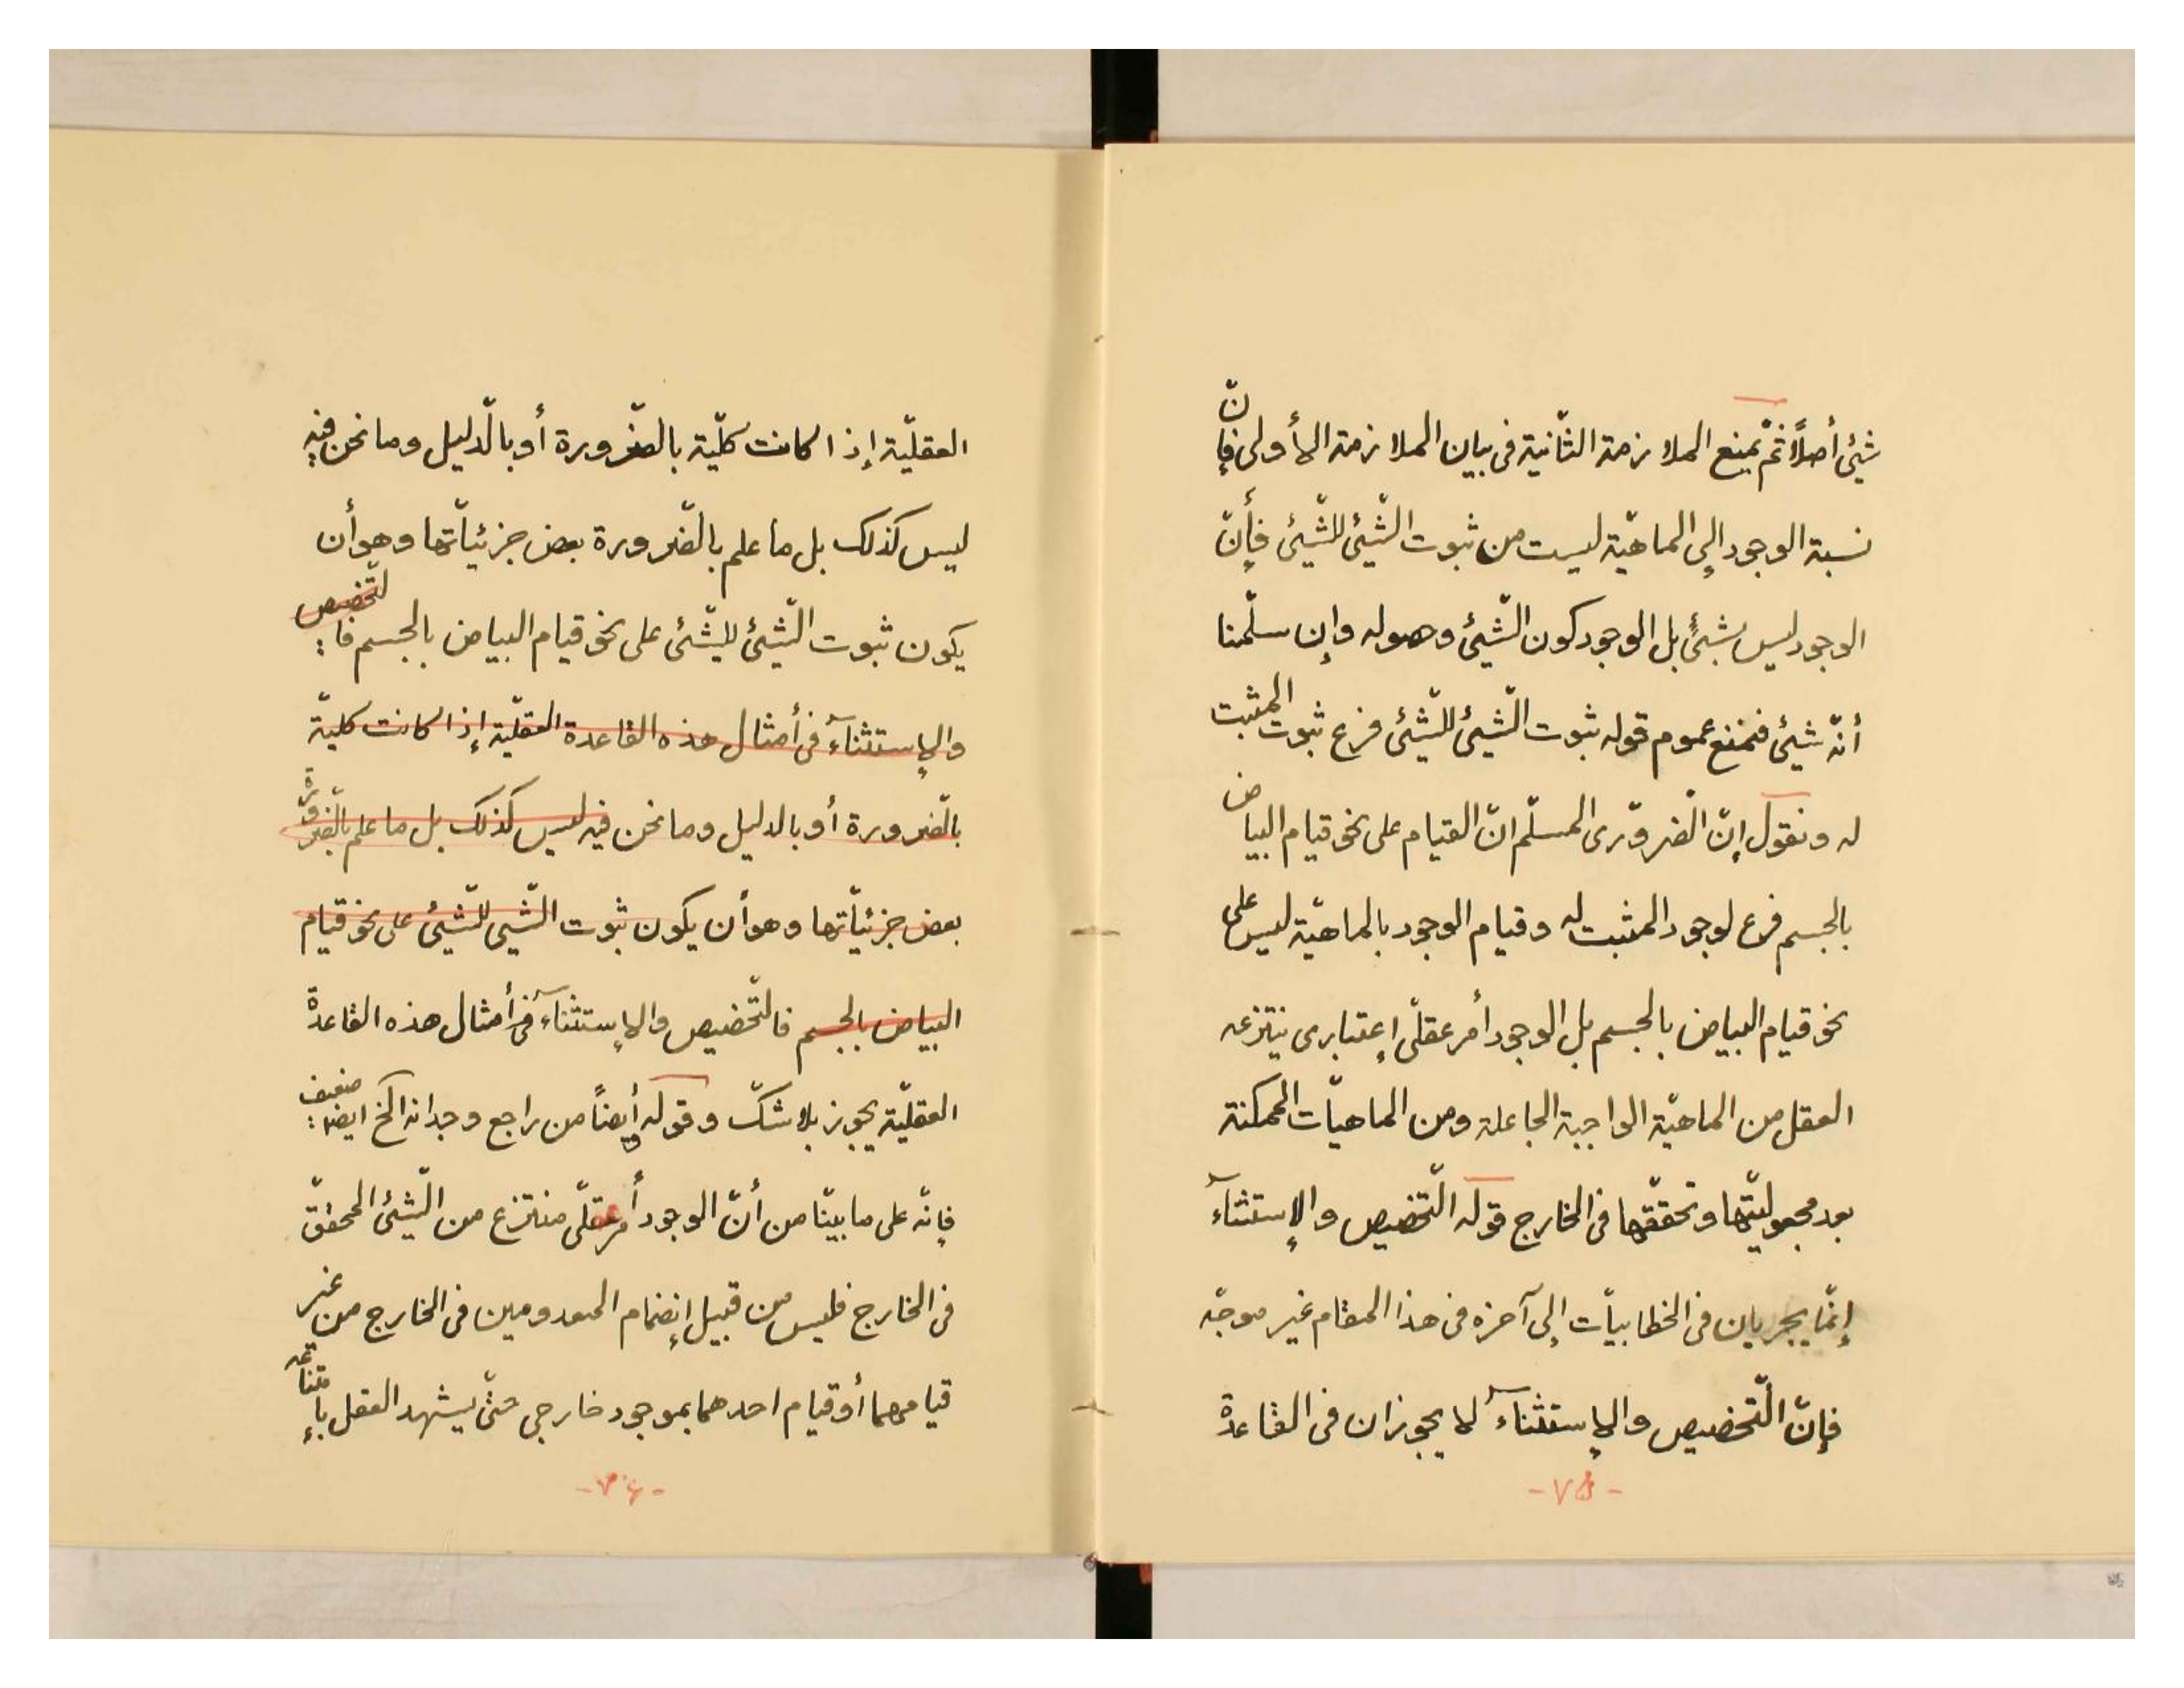 شيئ أصلاً ثمّ يمنع الملازمة الثّانية فى بيان الملازمة الأولى فإنّ
نسبة الوجود إلى الماهيّة ليست من ثبوت الشّيئ للشّيئ فأنّ
الوجود ليس بشيئٍ بل الوجود كون الشّيئ وحصوله وإن سلّمنا
أنّه شيئ فنمنع عموم قوله ثبوت الشّيئ للشّيئ فرع ثبوت المثبت
له ونقول إنّ الضّرورى المسلّم انّ القيام على نحو قيام البياض
بالجسم فرع لوجود المثبت له وقيام الوجود بالماهيّة ليس على
نحو قيام البياض بالجسم بل الوجود أمر عقلىّ إعتبارى ينتزعه
العقل من الماهيّة الواجبة الجاعلة ومن الماهيّات الممكنة
بعد مجعوليّتها وتحقّقها فى الخارج قوله التّخصيص والإستثنآء
إنّما يجريان فى الخطابيّات إلى آخره فى هذا المقام غير موجّه
فإنّ التّخصيص والإستثنآء لا يجوزان فى القاعدة
-٧۵-
العقليّة إذا كانت كلّيّة بالضّرورة أو بالّدليل وما نحن فيه
ليس كذلك بل ما علم بالضّرورة بعض جزئيّاتها وهو أن
يكون ثبوت الشّيئ للشّيئ على نحو قيام البياض بالجسم فا لتّخصيص
والإستثنآء فى أمثال هذه القاعدة العقليّة إذا كانت كليّة
بالضّرورة أو بالدليل وما نحن فيه ليس كذلك بل ما علم بالضّرورة
بعض جزئيّاتها وهو أن يكون ثبوت الشّيى للشّيئ على نحو قيام
البياض بالجسم فالتّخصيص والإستثنآء فى أمثال هذه القاعدة
العقليّة يجوز بلا شكّ وقوله أيضاً من راجع وجدانه الخ ايضا ضعيف
فإنّه على ما بيّنّا من أنّ الوجود أمر عقلىّ منتزع من الشّيئ المحقّق
فى الخارج فليس من قبيل إنضمام المعدومين فى الخارج من غير
قيامهما أو قيام احدهما بموجود خارجى حتّى يشهد العقل بإمتناعه
-٧۶-